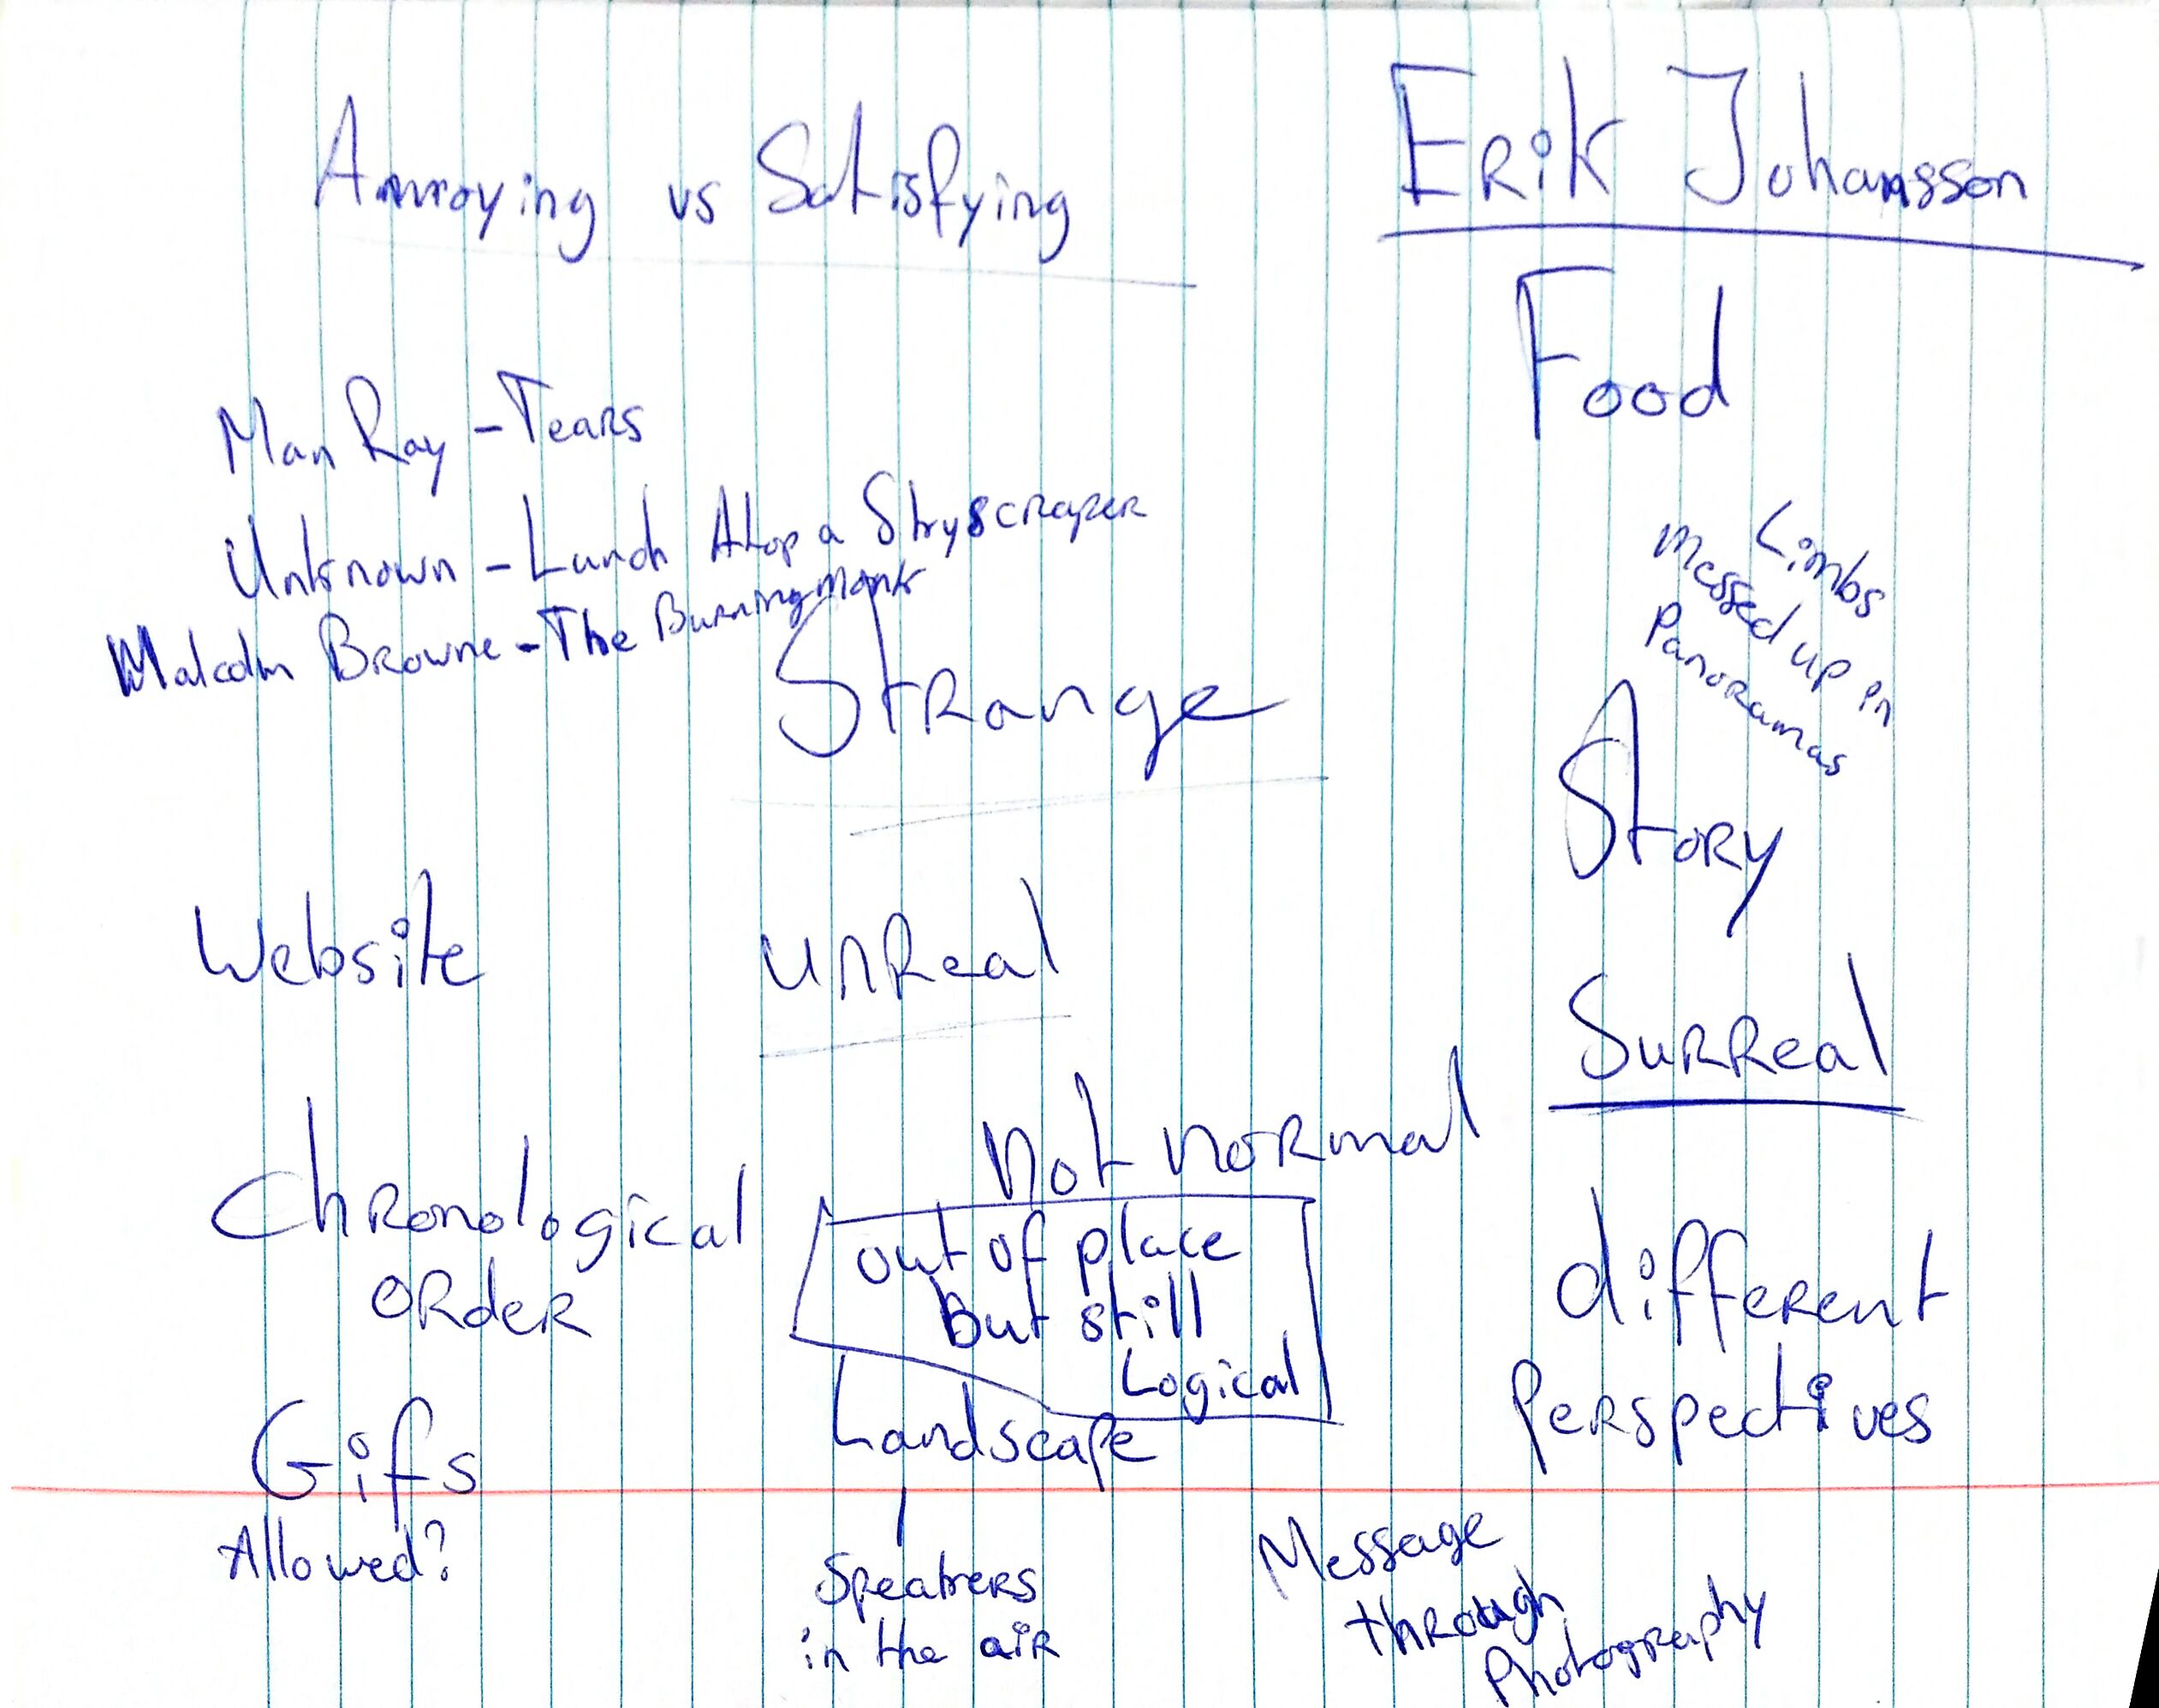 Annoying vs Satisfying
Erik Johansson
Food
Man Ray - Tears
Unknown - Lunch Atop a Skyscraper
Malcolm Browne - The Burning monk
Limbs
messed up in
Panoramas
Strange
Story
Website
unReal
Surreal
Chronological
order
not normal
out of place
But still
Logical
different
Perspectives
Landscape
Gifs
Allowed?
Speakers
in the air
Message
through
Photography